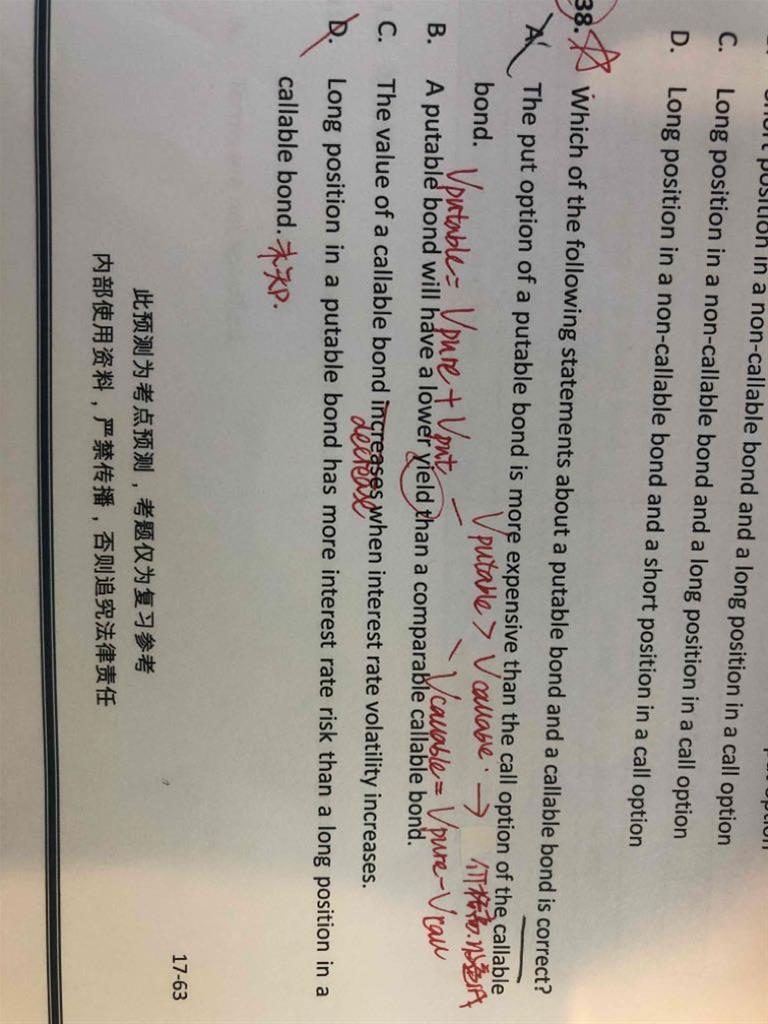 position in a non-callable bond and a long position in a call option
C. Long position in a non-callable bond and a long position in a call option
D. Long position in a non-callable bond and a short position in a call option
38. Which of the following statements about a putable bond and a callable bond is correct?
A. The put option of a putable bond is more expensive than the call option of the callable
bond.
Vputable > Vcallable. →
Vputable = Vpure + Vput
Vcallable = Vpure - Vcall
B. A putable bond will have a lower yield than a comparable callable bond.
C. The value of a callable bond increases when interest rate volatility increases.
decrease
D. Long position in a putable bond has more interest rate risk than a long position in a
callable bond. 未知.
此预测为考点预测，考题仅为复习参考
内部使用资料，严禁传播，否则追究法律责任
17-63